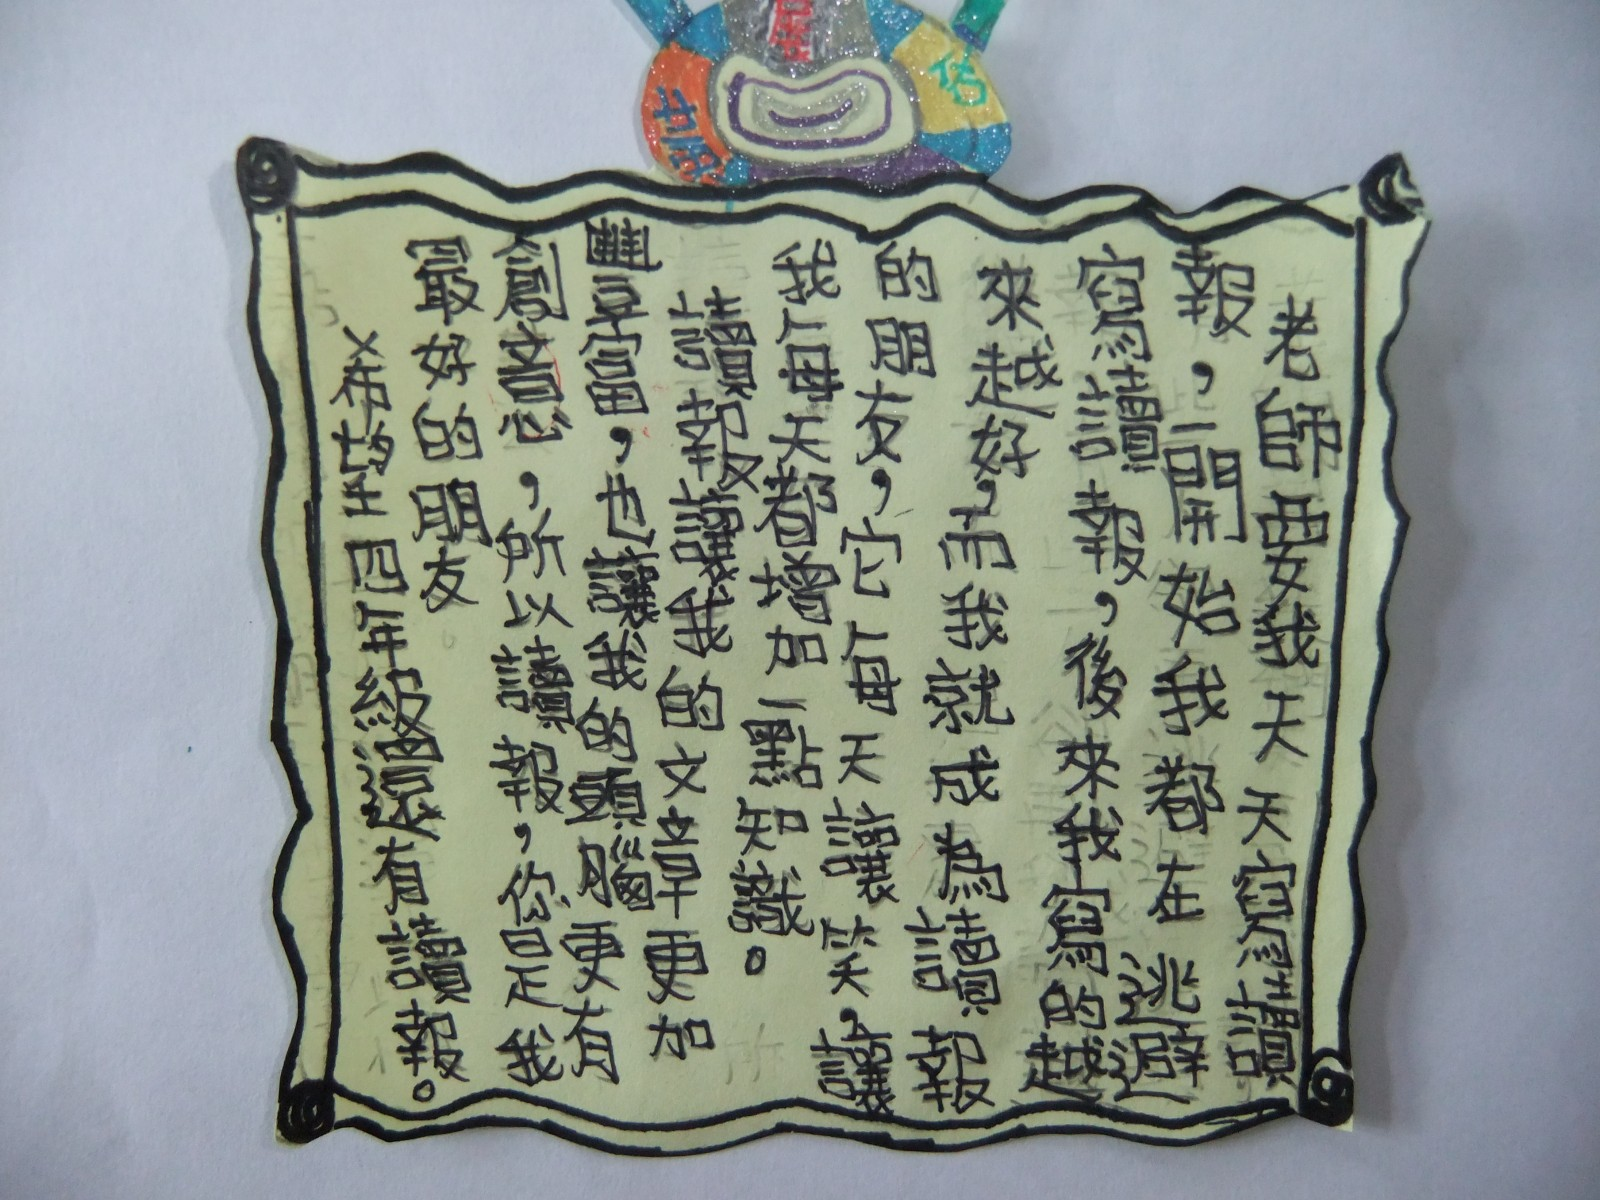 老師要我天天寫讀
報，一開始我都在逃避
寫讀報，後來我寫的越
來越好，而我就成為讀報
的朋友，它每天讓笑，讓
我每天都增加一點知識。
讀報讓我的文章更加
豐富，也讓我的頭腦更有
創意，所以讀報，你是我
最好的朋友
×希望四年級還有讀報。